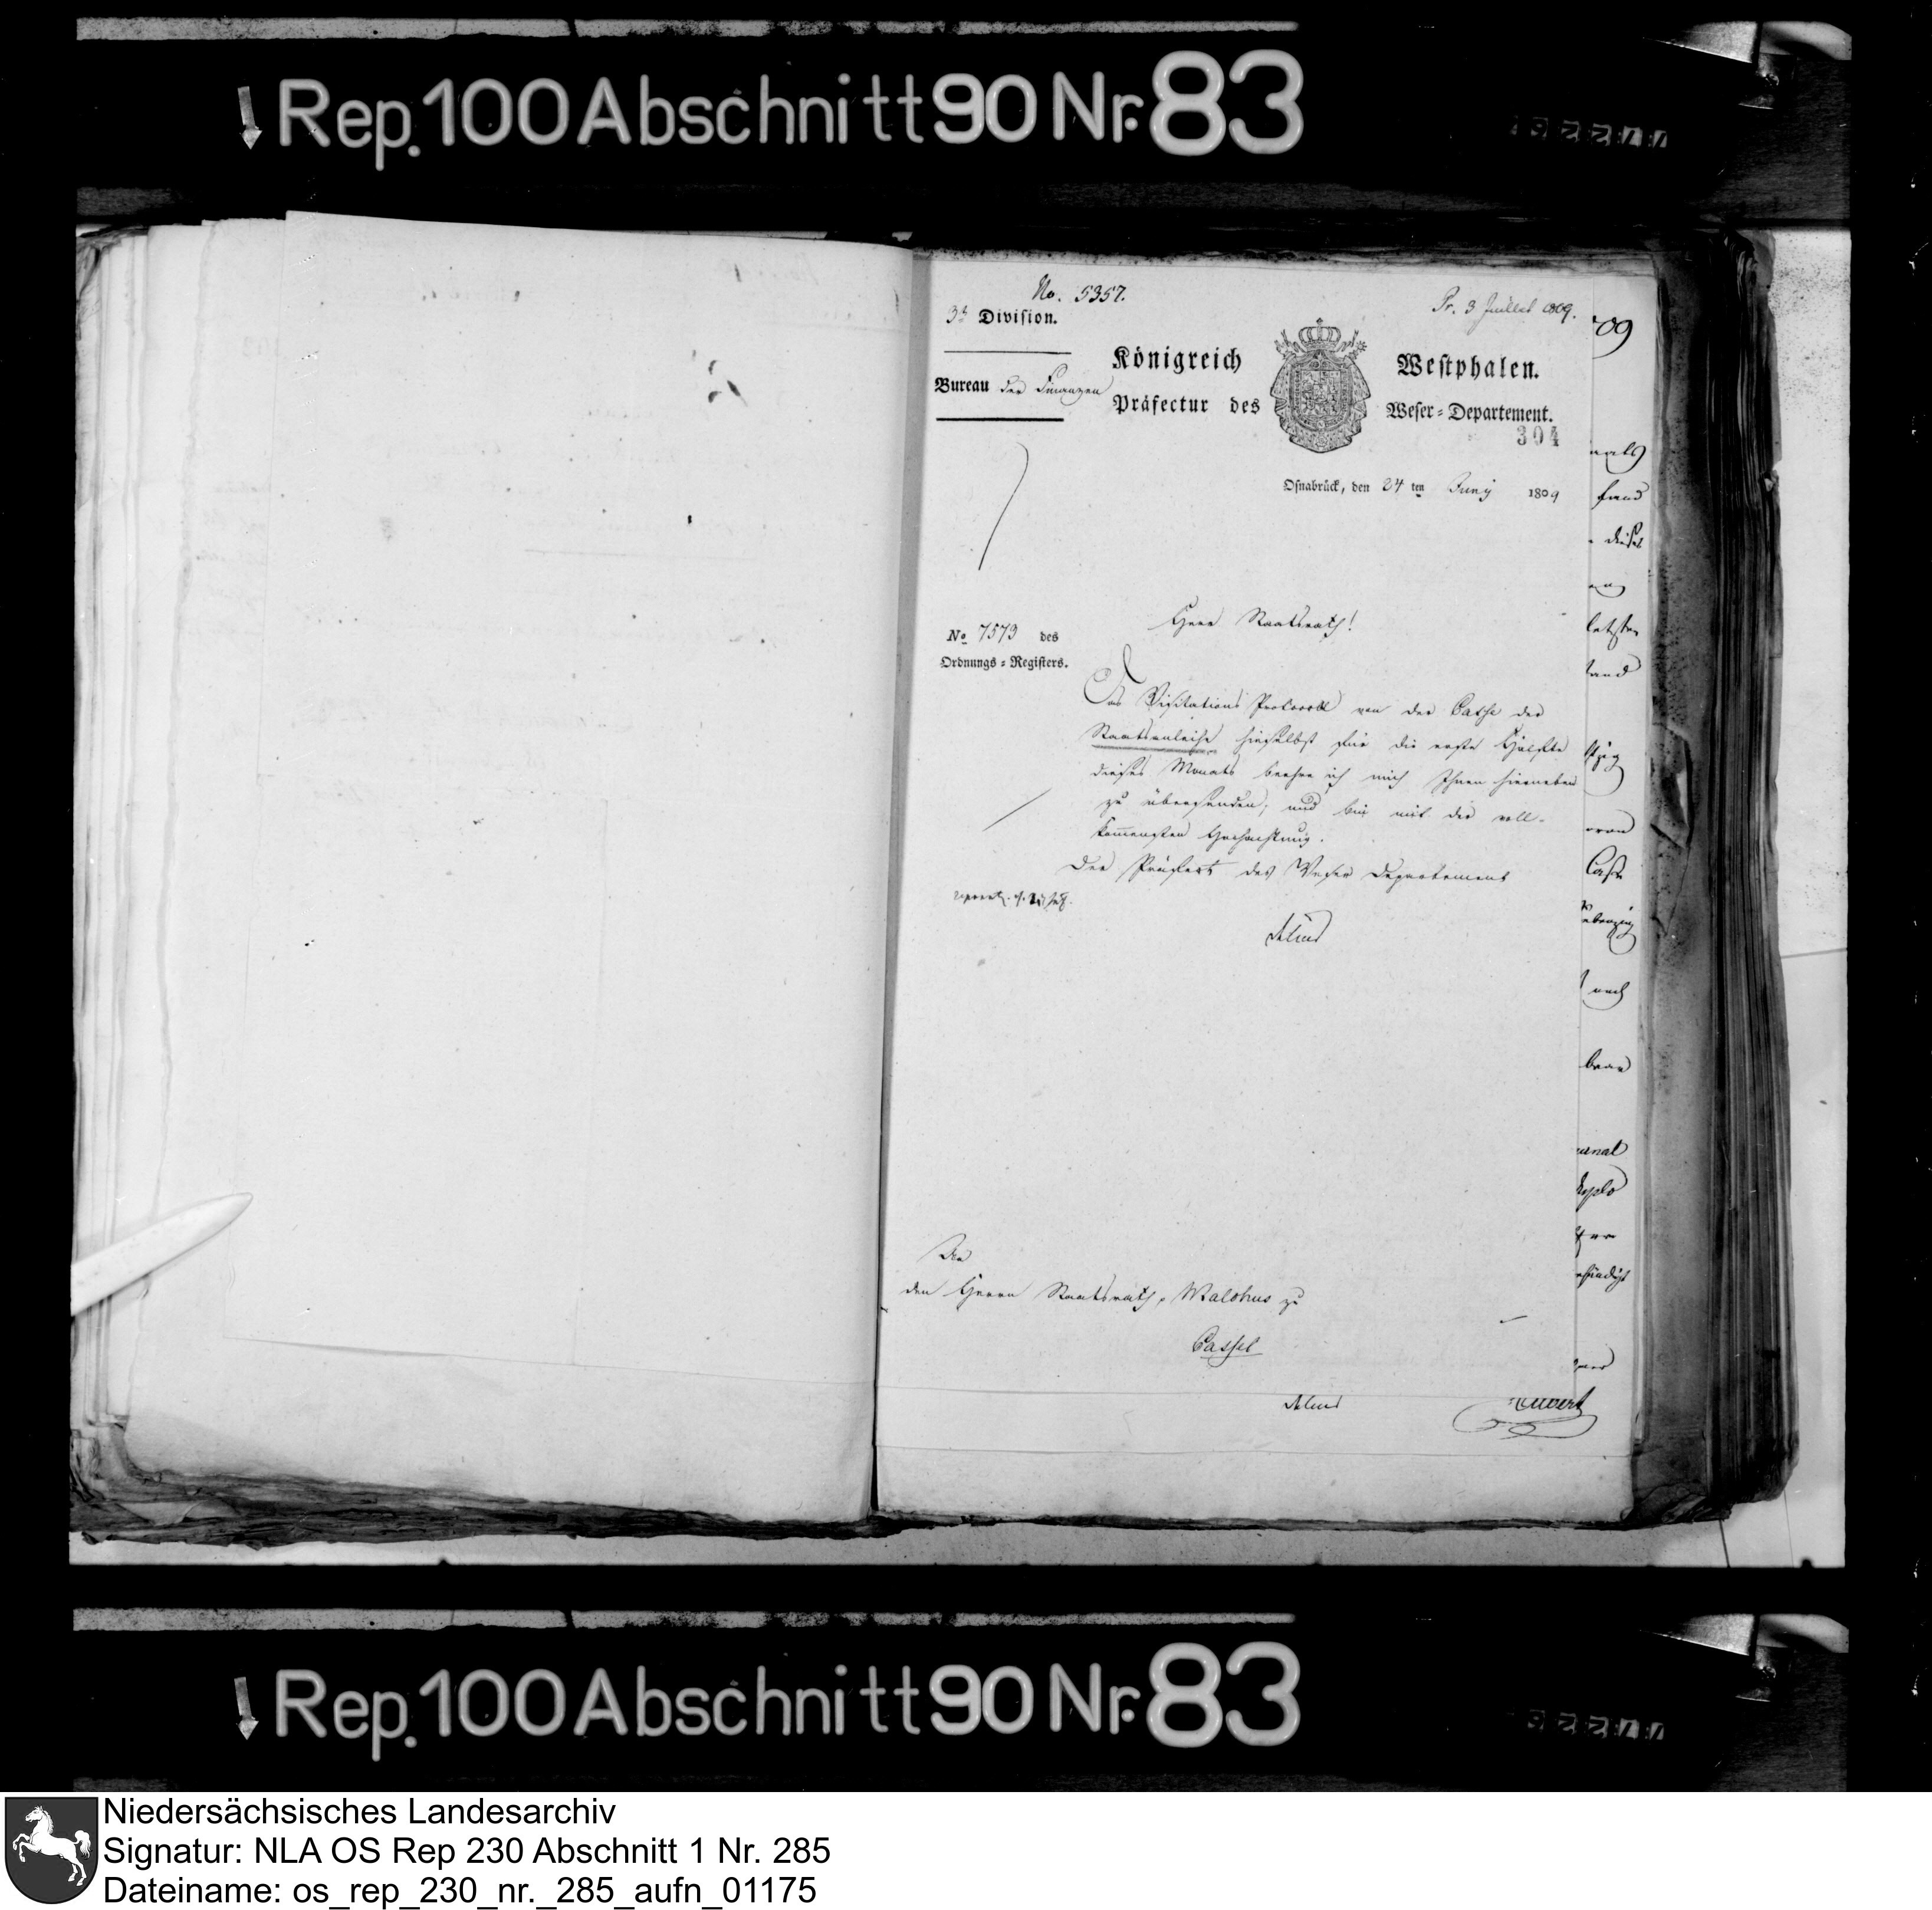 Rep. 100 Abschnitt 90 Nr. 83
No. 5357.
Pr. 3 Juillet 1809.
3te Division.
Königreich Westphalen.
Bureau der Finanzen
Präfectur des Weser-Departement.
304
Osnabrück, den 24 ten Juny 1809
Herr Staatsrath!
No 7573 des
Ordnungs-Registers.
Das Visitations Protocoll von der Casse der
Staatsanleihe hieselbst für die erste Hälfte
dieses Monats beehre ich mich Ihnen hierneben
zu übersenden, und bin mit der voll-
kommensten Hochachtung.
Der Präfect des Weser Departement
An
den Herrn Staatsrath, Malchus zu
Cassel
09
letzten
Casse
nach
Rep. 100 Abschnitt 90 Nr. 83
Niedersächsisches Landesarchiv
Signatur: NLA OS Rep 230 Abschnitt 1 Nr. 285
Dateiname: os_rep_230_nr._285_aufn_01175